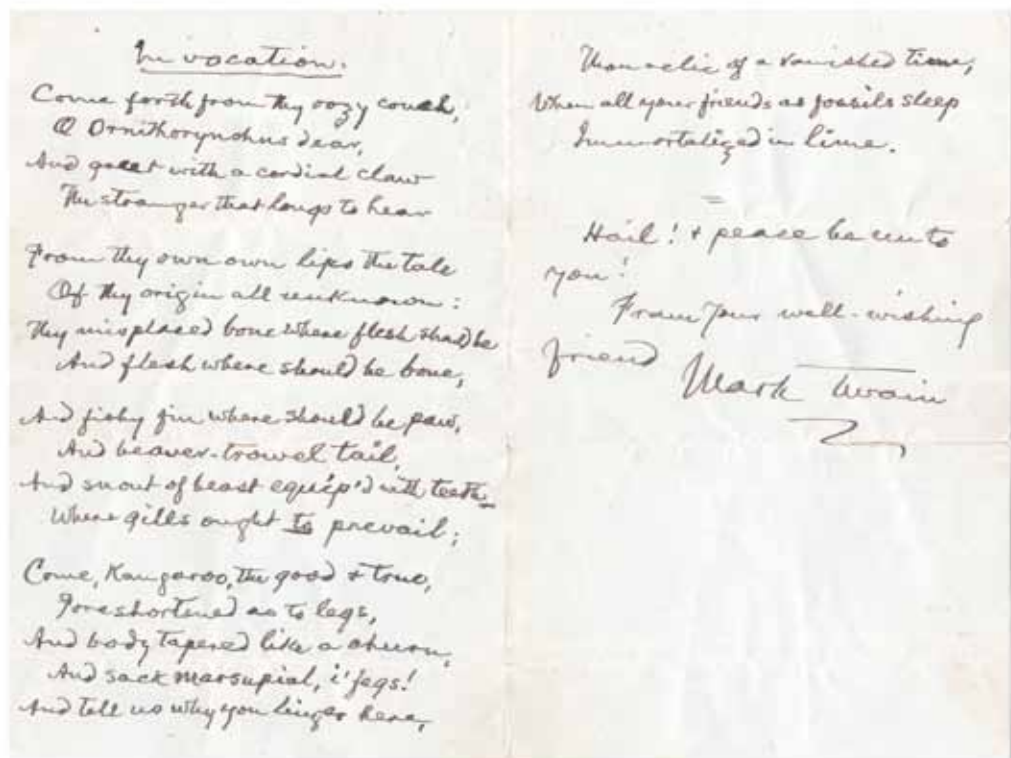 Invocation.
Come forth from thy oozy couch,
O Ornithorynchus dear,
And greet with a cordial claw
The stranger that longs to hear
From thy own own lips the tale
Of thy origin all unknown:
Thy misplaced bone where flesh should be
And flesh where should be bone;
And fishy fin where should be paw,
And beaver-trowel tail,
And snout of beast equip'd with teeth
Where gills ought to prevail;
Come, Kangaroo, the good & true,
Foreshortened as to legs,
And body tapered like a churn,
And sack marsupial, i' fegs!
And tell us why you linger here,
Thou relic of a vanished time,
When all your friends as fossils sleep
Immortalized in lime.
Hail! & peace be unto
you!
From your well-wishing
friend Mark Twain